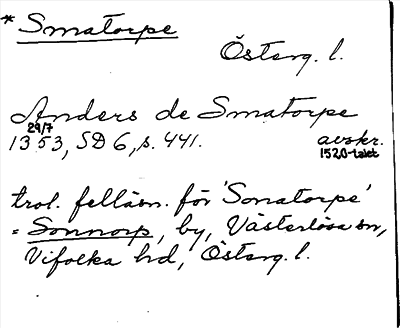 * Smatorpe
Österg. l.
Anders de Smatorpe
29/7
1353, SD 6, s. 441. avskr.
1520-talet
trol. felläsn. för 'Sonatorpe'
= Sonnorp, by, Västerlösa sn,
Vifolka hd, Österg. l.